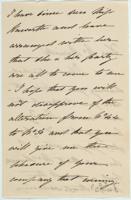 I have since seen Mrs
Haworth and have
arranged with her
that she & her party
are all to come to me
I hope that you will
not disapprove of the
alteration from
to and that you
will give me the
pleasure of your
company that evening